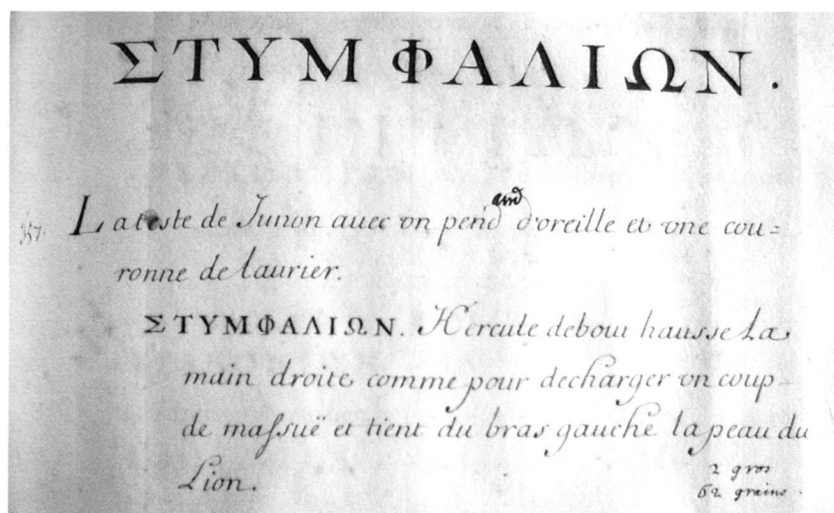 ΣΤΥΜΦΑΛΙΩΝ.
La teste de Junon auec vn pend and d'oreille et vne cou=
ronne de laurier.
ΣΤΥΜΦΑΛΙΩΝ. Hercule debout hausse la
main droite comme pour decharger vn coup
de massuë et tient du bras gauche la peau du
Lion.
2 gros
62 grains.